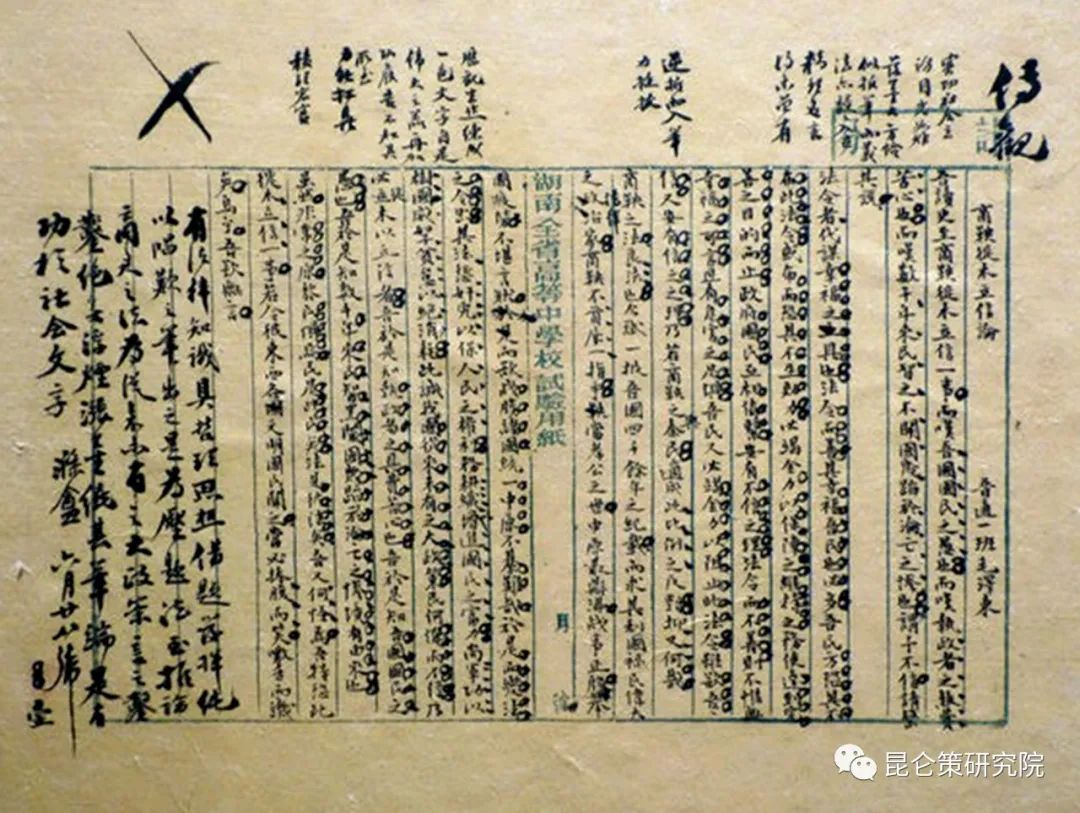 傳觀
實切社會立
論目光如炬
落墨大方恰
似報筆而義
法亦入古
精理名言
故未曾有
逆折而入筆
力挺拔
歷觀生作練成
一色文字自是
偉大之器再加
功候吾不知其
所至
力能扛鼎
積理宏富
商鞅徙木立信論
普通一班毛澤東
吾讀史至商鞅徙木立信一事而嘆吾國國民之愚也而嘆執政者之煞費
苦心也而嘆數千年來民智之不開國幾蹈於淪亡之慘也謂予不信請罄
其說
法令者代謀幸福之具也法令而善其幸福吾民也必多吾民方恐其不
布此法令或布而恐其不生效力必竭全力以保障之維持之務使達到完
善之目的而止政府國民互相倚繫安有不信之理法令而不善則不惟無
幸福之可言且有危害之足懼吾民又必竭全力以阻止此法令雖欲吾
信又安有信之之理乃若商鞅之與秦民適成此比例之反對抑又何哉
商鞅之法良法也今試一披吾國四千餘年之紀載而求其利國福民偉大
之政治家商鞅不首屈一指乎鞅當孝公之世中原鼎沸戰事正殷舉
湖南全省高等中學校試驗用紙
月
國疲勞不堪言狀於是而欲戰勝諸國統一中原不綦難哉於是而變法
之令出其法懲奸宄以保人民之權利務耕織以增進國民之富力尚軍功以
樹國威孥貧怠以絕消耗此誠我國從來未有之大政策民何憚而不信乃
必徙木以立信者吾於是知執政者之具費苦心也吾於是知吾國國民之
愚也吾於是知數千年來民智黑闇國幾蹈於淪亡之慘境有由來也
雖然非常之原黎民懼焉民是此民矣法是彼法矣吾又何怪焉吾特恐此
徙木立信一事若令彼東西各文明國民聞之當必捧腹而笑噭舌而譏
矣烏乎吾欲無言
有法律知識具哲理思想借題發揮純
以唱歎之筆出之是為壓題法至推論
商君之法為從來未有之大政策言之鑿
鑿絕無浮煙漲墨繞其筆端是有
功於社會文字
滌盦六月廿八號
昆仑策研究院